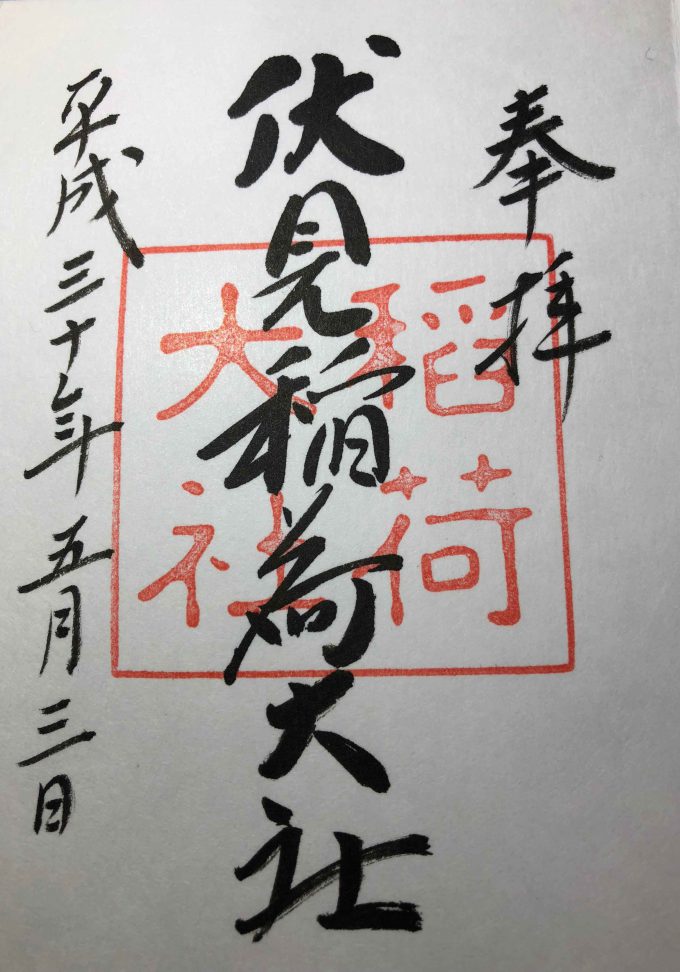 奉拝
伏見稲荷大社
平成三十年五月三日
稲荷
大社